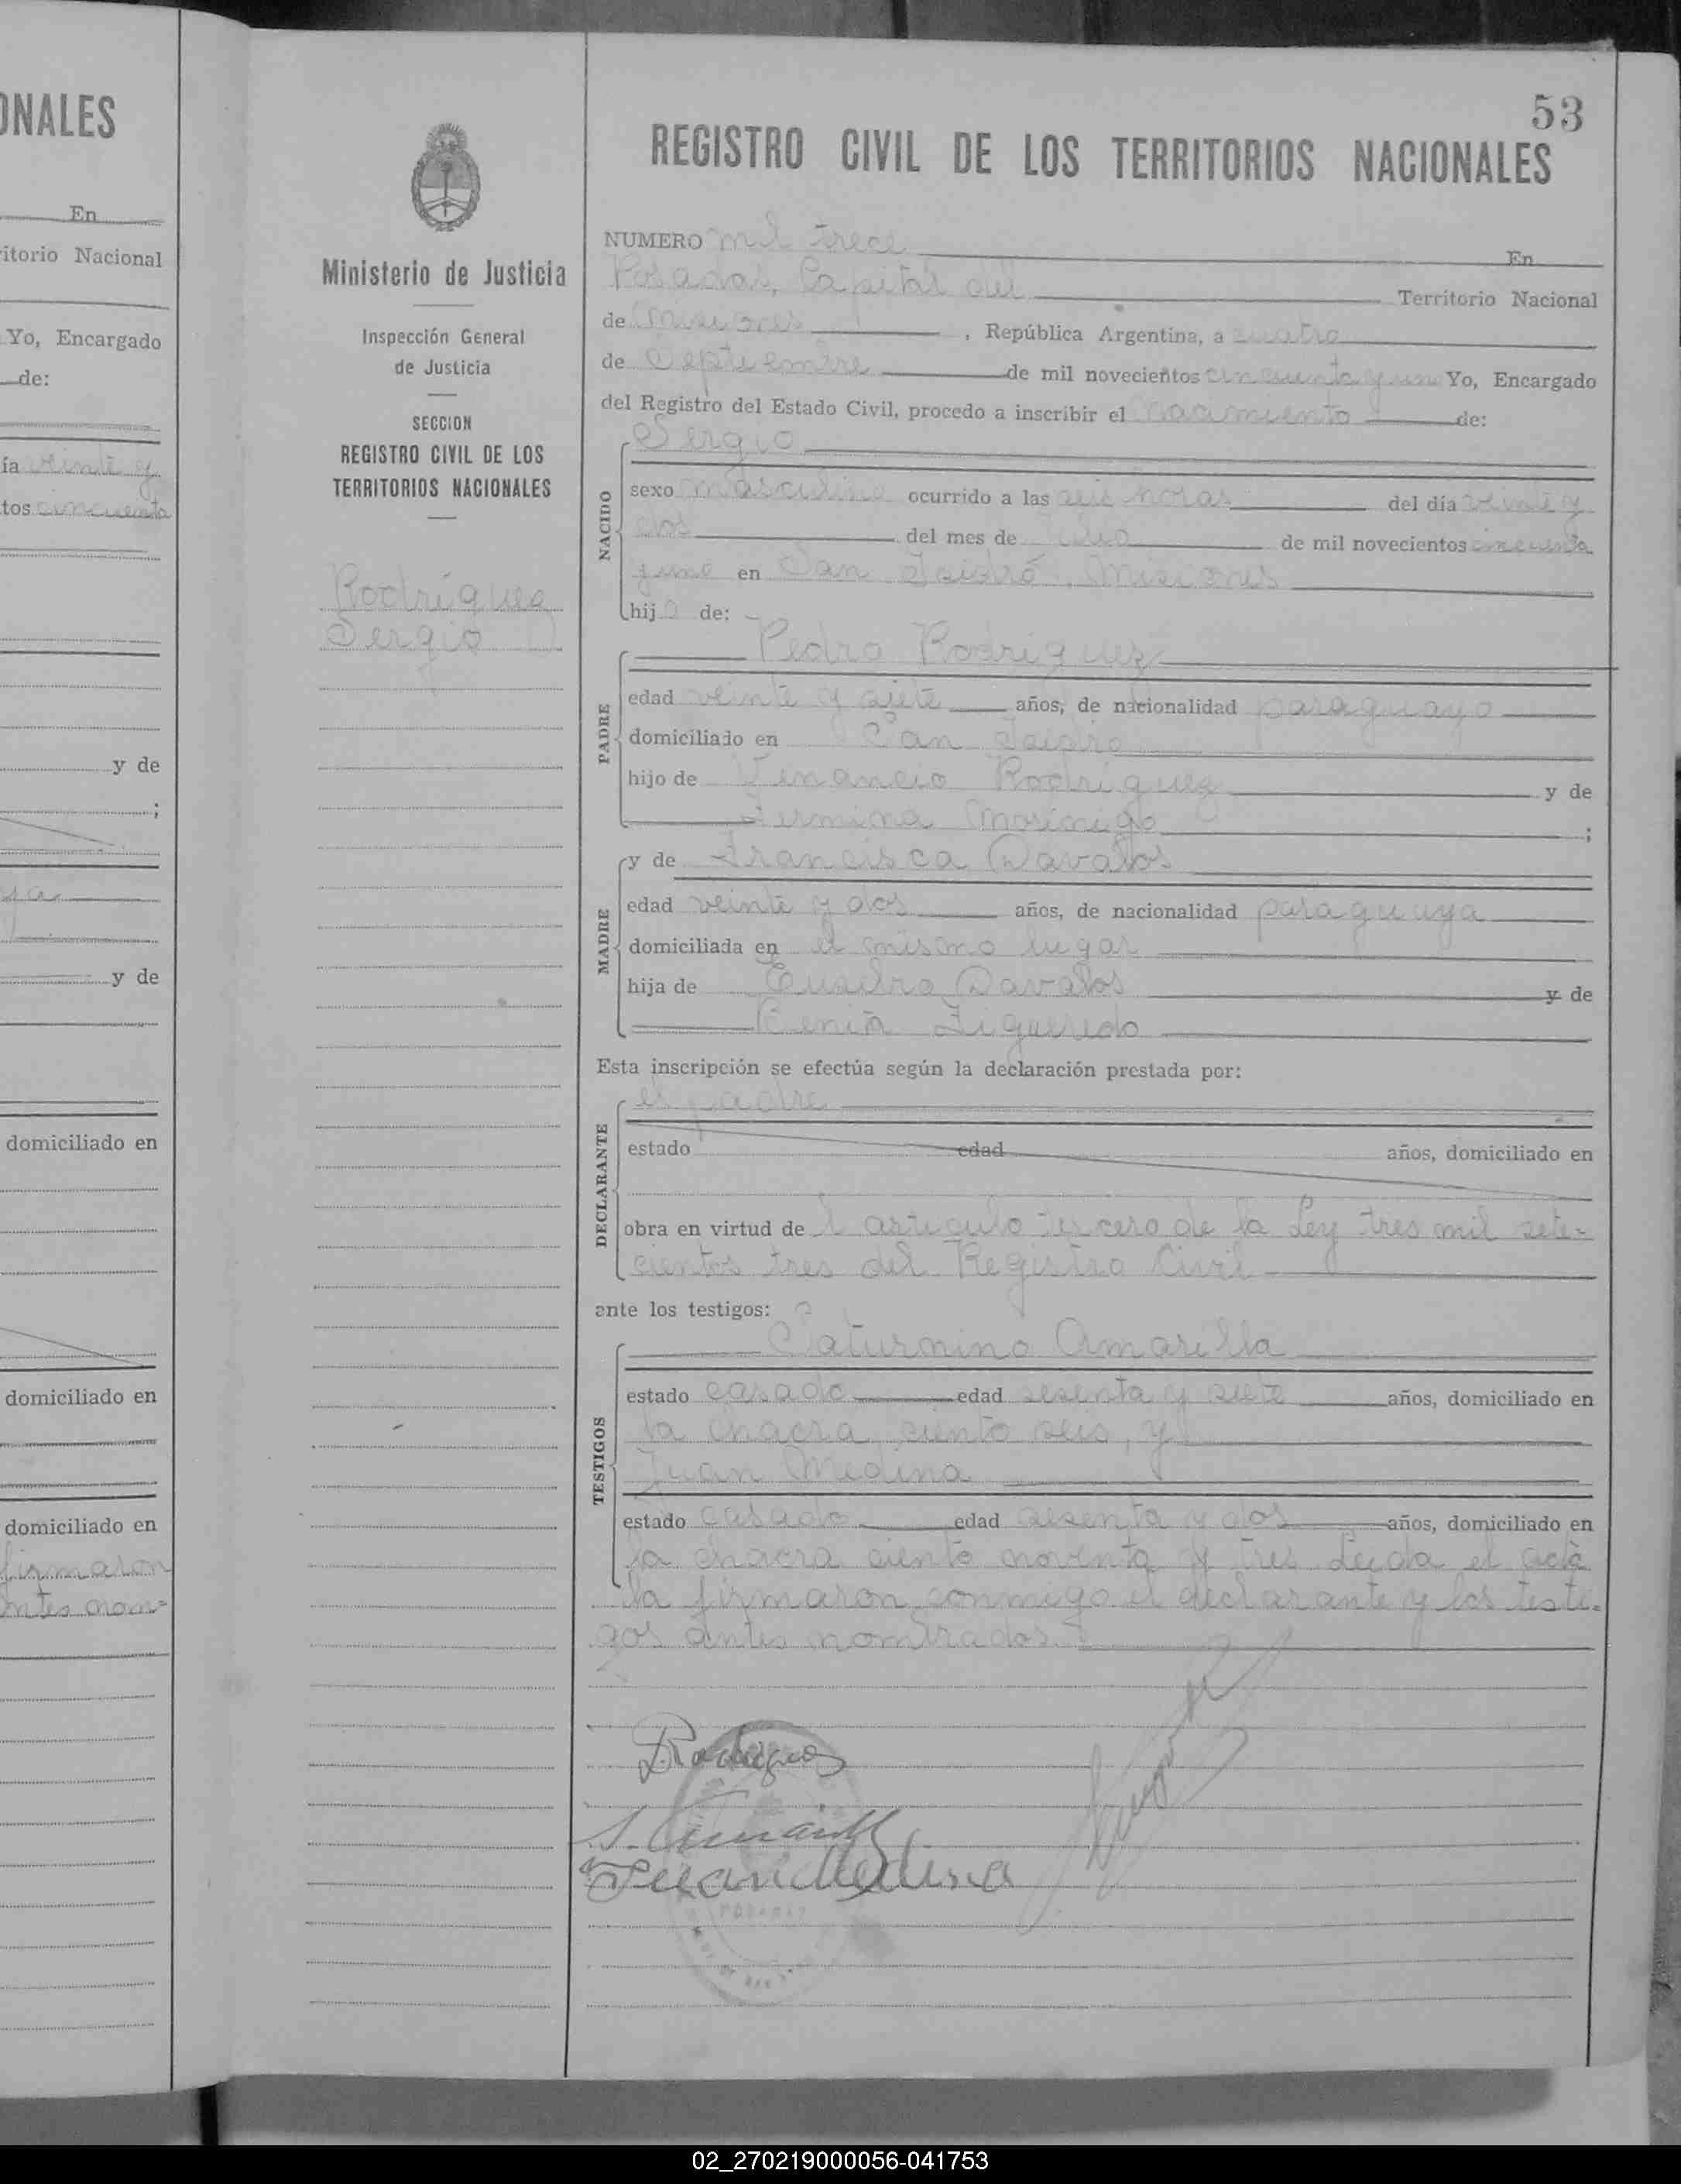 ONALES
En
itorio Nacional
Yo, Encargado
de:
ía veinte y
tos cincuenta
y de
;
ya
y de
domiciliado en
domiciliado en
domiciliado en
firmaron
antes nom=
Ministerio de Justicia
Inspección General
de Justicia
SECCION
REGISTRO CIVIL DE LOS
TERRITORIOS NACIONALES
Rodríguez
Sergio
53
REGISTRO CIVIL DE LOS TERRITORIOS NACIONALES
NUMERO mil trece En
Posadas, Capital del Territorio Nacional
de Misiones, República Argentina, a cuatro
de Septiembre de mil novecientos cincuenta y un Yo, Encargado
del Registro del Estado Civil, procedo a inscribir el nacimiento de:
Sergio
NACIDO
sexo masculino ocurrido a las seis horas del día veinte y
dos del mes de de mil novecientos cincuenta
y uno en San Isidro, Misiones
hijo de:
Pedro Rodriguez
PADRE
edad veinte y siete años, de nacionalidad paraguayo
domiciliado en San Isidro
hijo de Venancio Rodriguez y de
Fermina Morinigo ;
y de Francisca Davalos
MADRE
edad veinte y dos años, de nacionalidad paraguaya
domiciliada en el mismo lugar
hija de Davalos y de
Benita Figueredo
Esta inscripción se efectúa según la declaración prestada por:
el padre
DECLARANTE
estado edad años, domiciliado en
obra en virtud de l articulo tercero de la Ley tres mil sete-
cientos tres del Registro Civil
ante los testigos:
Saturnino Amarilla
TESTIGOS
estado casado edad sesenta y siete años, domiciliado en
la chacra ciento seis, y
Juan Medina
estado casado edad sesenta y dos años, domiciliado en
la chacra ciento noventa y tres Leida el acta
la firmaron conmigo el declarante y los testi-
gos antes nombrados.
PRodriguez
S. Amarilla
Juan Medina
02_270219000056-041753